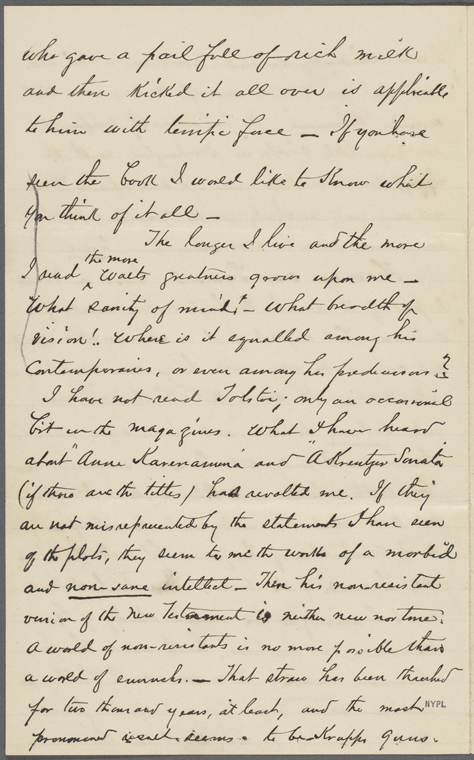 who gave a pail full of rich milk
and then kicked it all over is applicable
to him with terrific force — If you have
seen the book I would like to know what
you think of it all —
The longer I live and the more
the more
I read Walt's greatness grows upon me —
What sanity of mind! — What breadth of
vision! Where is it equalled among his
Contemporaries, or even among his predecessors?
I have not read Tolstoi; only an occasional
bit in the magazines. What I have heard
about "Anne Karenamina and "A Kreutzer Sonata
(if those are the titles) has revolted me. If they
are not misrepresented by the statements I have seen
of the plots, they seem to me the works of a morbid
and non-sane intellect — Then his non-resistant
version of the New Testament is neither new nor true.
A world of non-resistants is no more possible than
a world of eunuchs. — That straw has been thrashed
for two thousand years, at least, and the most
NYPL
pronounced seems to be Krupps guns.